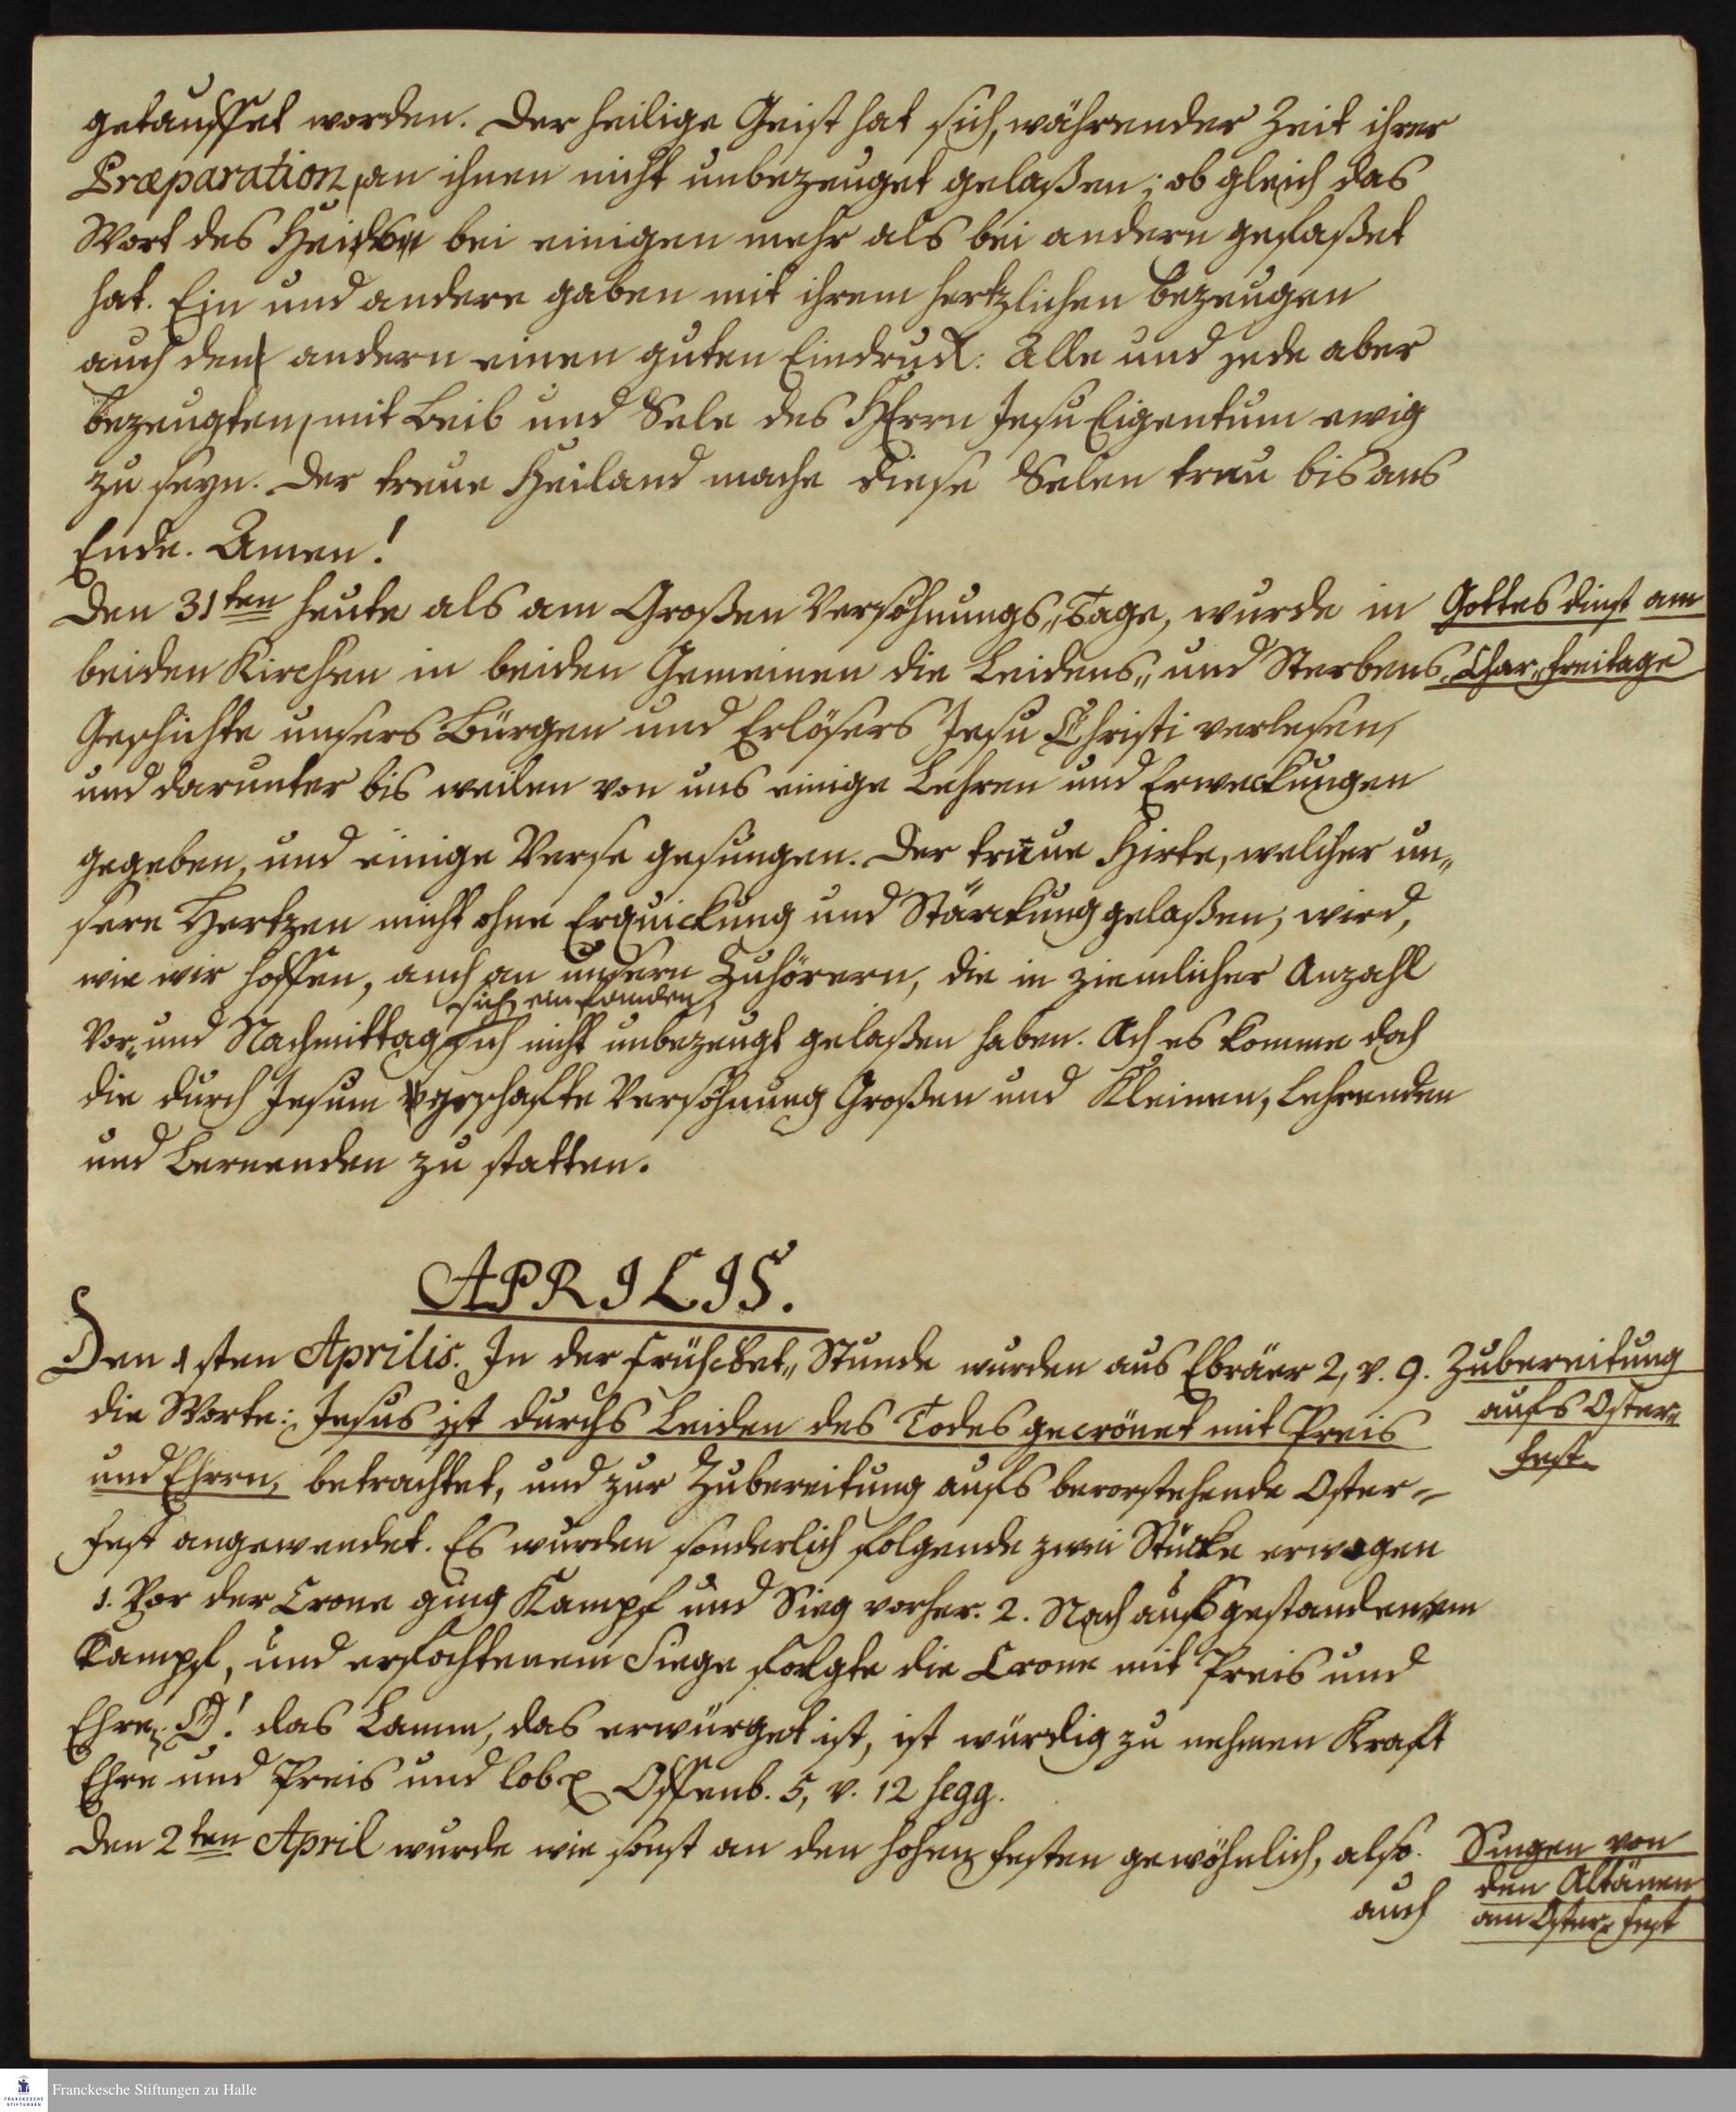 getauffet worden. Der heilige Geist hat sich, währender Zeit ihrer
Præparation, an ihnen nicht unbezeuget gelaßen; ob gleich das
Wort des bei einigen mehr als bei andern gefaßet
hat. Ein und andere gaben mit ihrem hertzlichen bezeugen
auch den andern einen guten Eindruck: Alle und jede aber
bezeugten, mit Leib und Sele des HErrn Jesu Eigentum ewig
zu seyn. Der treue Heiland mache diese Selen treu bis ans
Ende. Amen!
Den 31ten heute als am Großen Versöhnungs„Tage, wurde in
Gottesdinst am
beiden Kirchen in beiden Gemeinen die Leidens„ und Sterbens
Char„freitage
Geschichte unsers Bürgen und Erlösers Jesu Christi verlesen,
und darunter bis weilen von uns einige Lehren und Erweckungen
gegeben, und einige Verse gesungen. Der treue Hirte, welcher un„
sere Hertzen nicht ohne Erquickung und Stärckung gelaßen, wird,
wie wir hoffen, auch an unsern Zuhörern, die in ziemlicher Anzahl
sich einfanden,
Vor„ und Nachmittag sich nicht unbezeugt gelaßen haben. Ach es komme doch
die durch Jesum verschafte Versöhnung Großen und Kleinen, Lehrenden
und Lernenden zu statten.
APRILIS.
Den 1sten Aprilis. In der früh„Bet„Stunde wurden aus Ebräer 2, v. 9.
Zubereitung
die Worte: Jesus ist durchs Leiden des Todes gecrönet mit Preis
aufs Oster„
und Ehren, betrachtet, und zur Zubereitung aufs bevorstehende Oster„
fest.
fest angewendet. Es wurden sonderlich folgende zwei Stücke erwogen
1. Vor der Crone ging Kampf und Sieg vorher. 2. Nach ausgestandenem
Kampf, und erfochtenem Siege folgte die Crone mit Preis und
Ehren. O! das Lamm, das erwürget ist, ist würdig zu nehmen Kraft
Ehre und Preis und lob Offenb. 5, v. 12 seqq.
Den 2ten April wurde wie sonst an den hohen festen gewöhnlich, also
Singen von
den Altänen
auch
am Oster„fest
Franckesche Stiftungen zu Halle
FRANCKESCHE
STIFTUNGEN